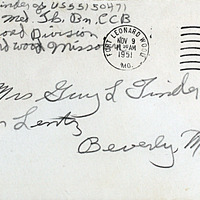 inder of US55150471
Med Tk. Bn. CCB
oad Division
rd wood Missou
FORT LEONARD WOOD
NOV 9
AM
1951
MO.
Mrs Guy L Tinder
n Lentz
Beverly M